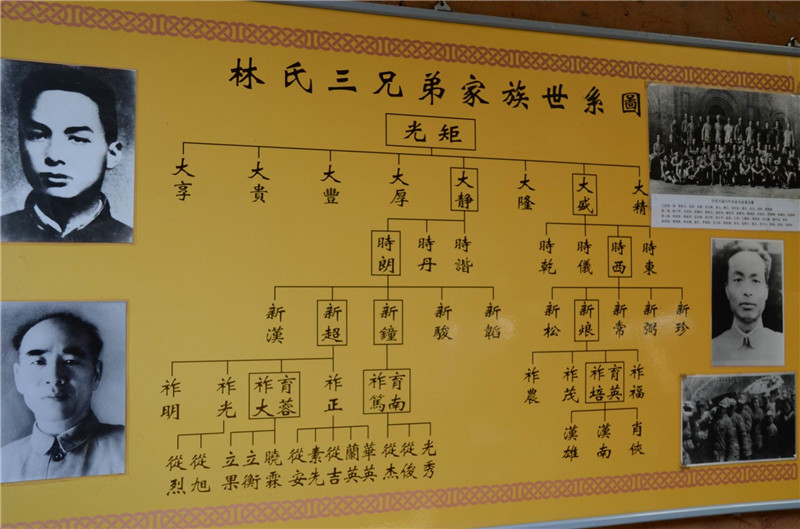 林氏三兄弟家族世系圖
光矩
大享 大貴 大豐 大厚 大靜 大隆 大盛 大精
時朗 時丹 時諧 時乾 時儀 時西 時東
新漢 新超 新鐘 新駿 新韜 新松 新烺 新常 新弼 新珍
祚明 祚光 祚大 育蓉 祚正 祚篤 育南 祚農 祚茂 祚培 育英 祚福
漢雄 漢南 肖俠
從烈 從旭 立果 立衡 曉霖 從安 素先 從吉 蘭英 華英 從杰 從俊 光秀